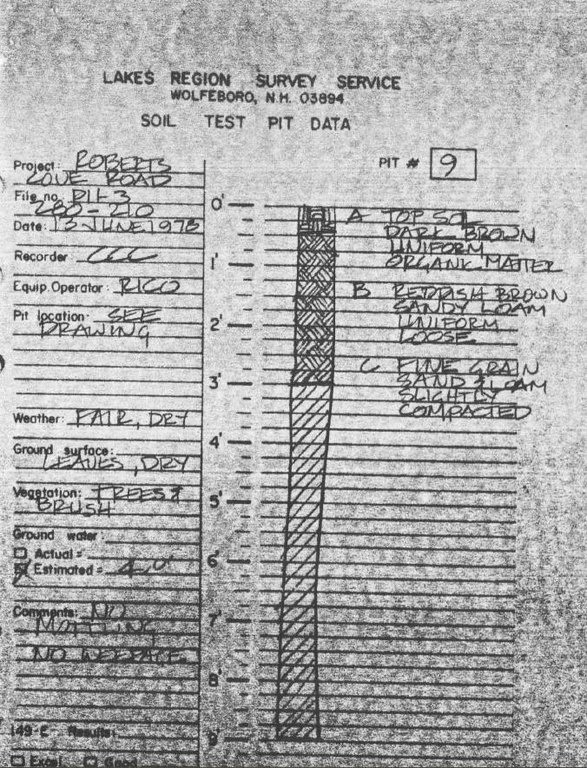 LAKES REGION SURVEY SERVICE
WOLFEBORO, N.H. 03894
SOIL TEST PIT DATA
PIT # 9
Project: ROBERTS
COVE ROAD
File no.
280-210
Date: 13 JUNE 1978
Recorder: CCC
Equip. Operator: RICO
Pit location: SEE
DRAWING
Weather: FAIR, DRY
Ground surface:
LEAVES, DRY
Vegetation: TREES &
BRUSH
Ground water:
Actual =
Estimated =
Comments: NO
MOTTLING
NO WEEPAGE
149-E Results:
Excel. Good
0'
1'
2'
3'
4'
5'
6'
7'
8'
9'
A TOP SOIL
DARK BROWN
UNIFORM
ORGANIC MATTER
B REDDISH BROWN
SANDY LOAM
UNIFORM
LOOSE
C FINE GRAIN
SAND & LOAM
SLIGHTLY
COMPACTED